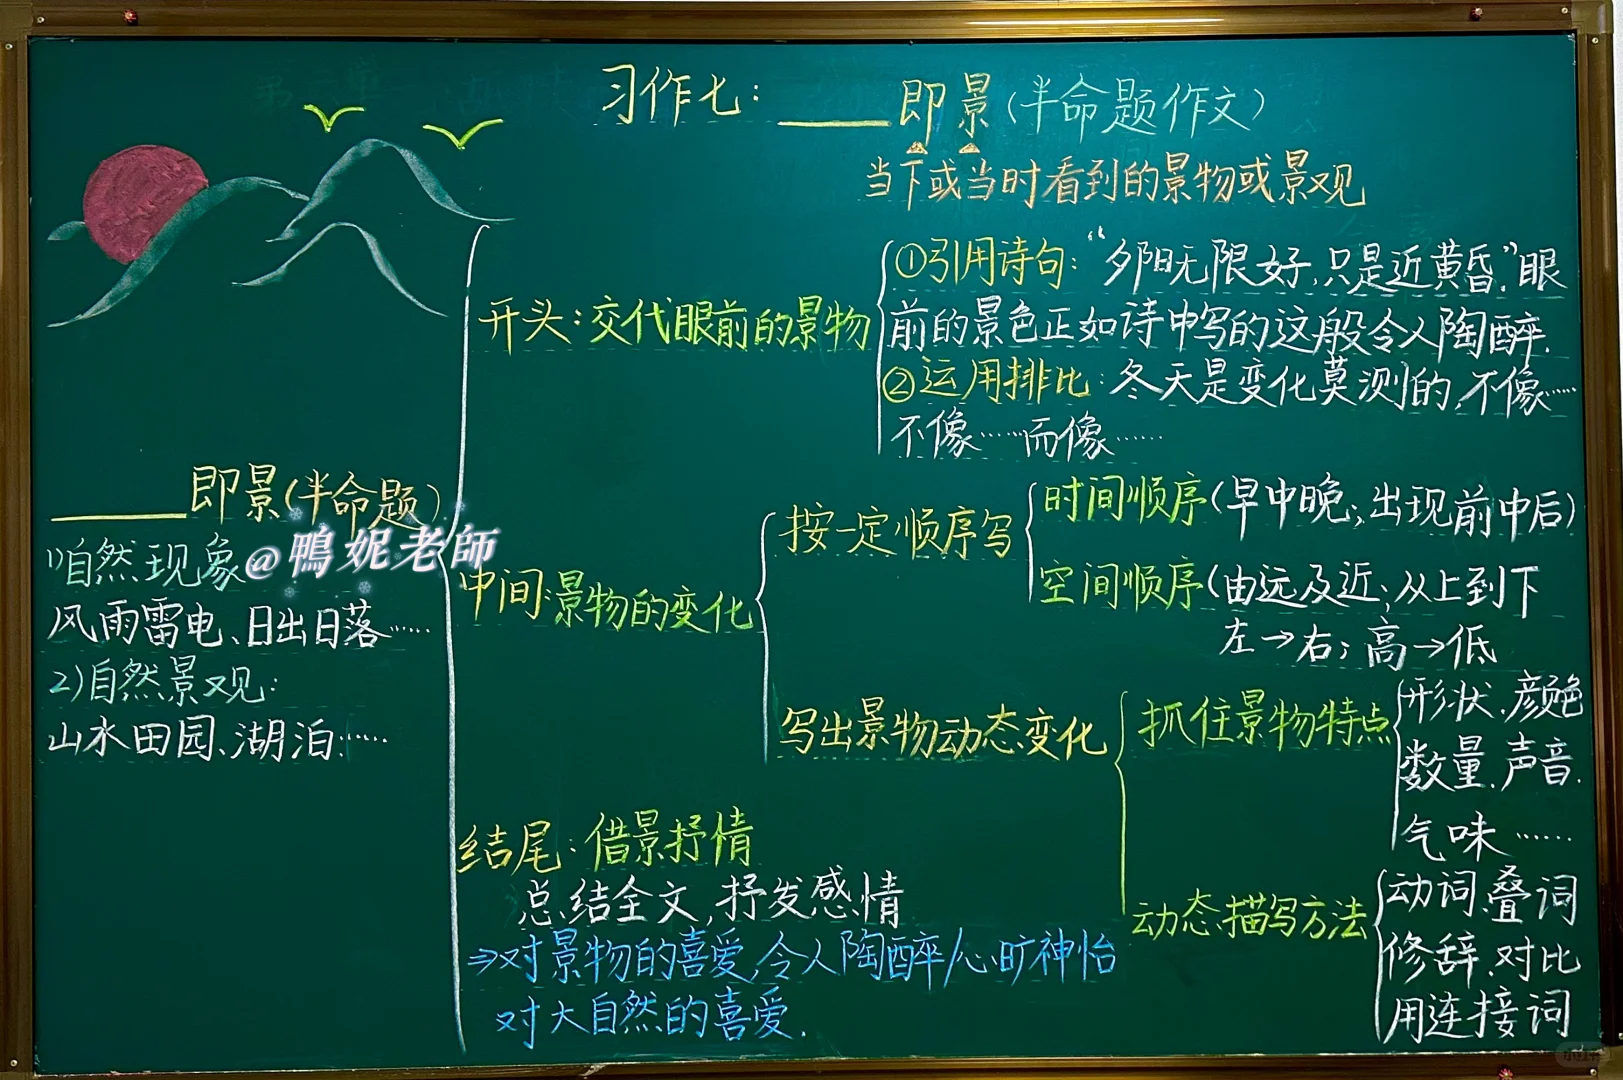 习作七：____即景(半命题作文)
当下或当时看到的景物或景观
____即景(半命题)
1)自然现象
@鴨妮老師
风雨雷电、日出日落……
2)自然景观:
山水田园、湖泊……
开头:交代眼前的景物
①引用诗句:“夕阳无限好,只是近黄昏.”眼
前的景色正如诗中写的这般令人陶醉.
②运用排比:冬天是变化莫测的,不像……
不像……而像……
中间:景物的变化
按一定顺序写
时间顺序(早中晚;出现前中后)
空间顺序(由远及近;从上到下
左→右;高→低
写出景物动态变化
抓住景物特点
形状.颜色
数量.声音.
气味……
动态描写方法
动词.叠词
修辞.对比
用连接词
结尾:借景抒情
总结全文,抒发感情
⇒对景物的喜爱,令人陶醉/心旷神怡
对大自然的喜爱.